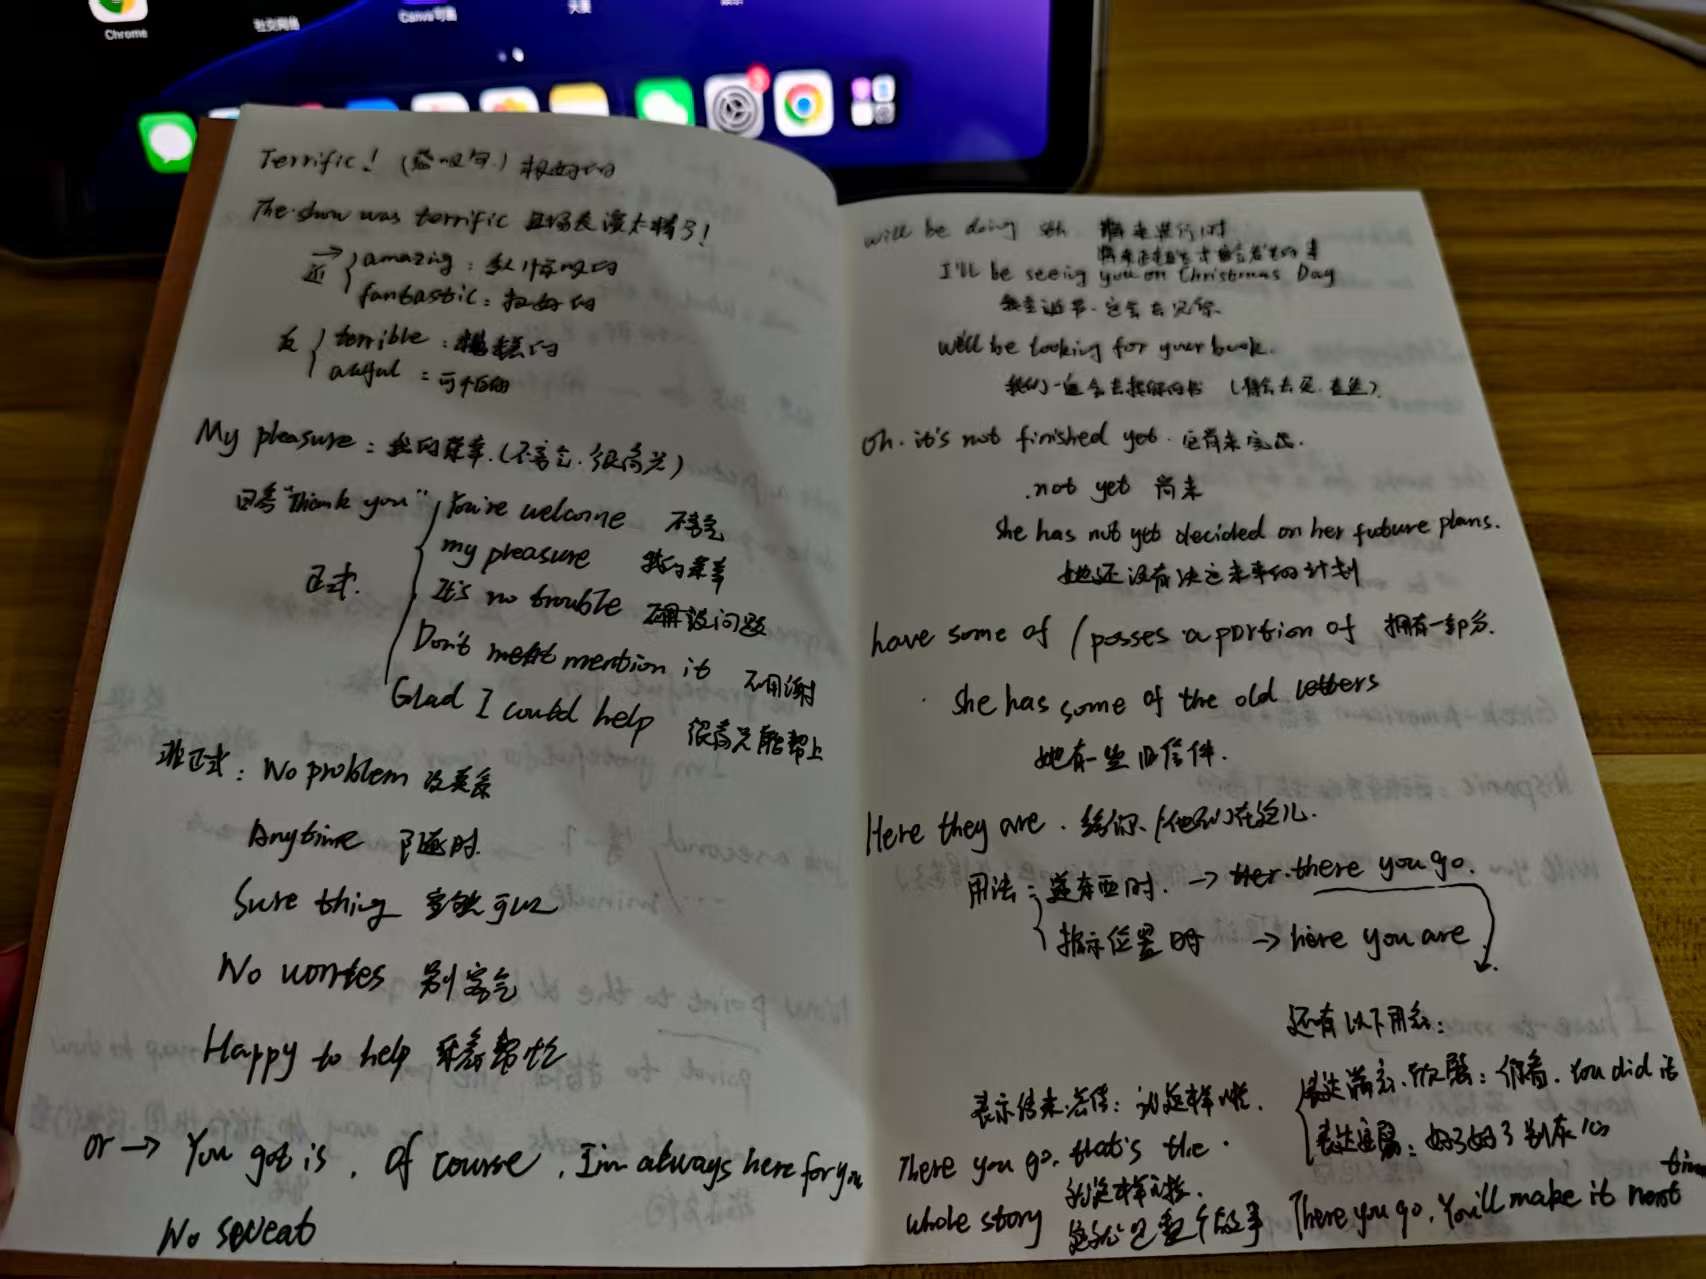 Chrome
社交网络
Canva可画
Terrific! (感叹句) 极好的
The show was terrific 这场表演太棒了!
近 amazing: 令人惊叹的
fantastic: 极好的
反 terrible: 糟糕的
awful: 可怕的
My pleasure: 我的荣幸.(不客气.很高兴)
回答"Thank you" You're welcome 不客气
my pleasure 我的荣幸
正式. It's no trouble 没问题
Don't mention it 不用谢
Glad I could help 很高兴能帮上
非正式: No problem 没关系
Anytime 随时
Sure thing 当然可以
No worries 别客气
Happy to help 乐意帮忙
or → You got is, Of course, I'm always here for you
No sweat
will be doing sth 将来进行时
将来正在发生或会发生的事
I'll be seeing you on Christmas Day
我圣诞节一定会去见你.
We'll be looking for your book.
我们一定会去找你的书
Oh. it's not finished yet. 它尚未完成.
not yet 尚未
She has not yet decided on her future plans.
她还没有决定未来的计划
have some of / posses a portion of 拥有一部分.
she has some of the old letters
她有一些旧信件.
Here they are. 给你.(他们)在这儿.
用法: 递东西时. → there you go.
指示位置时 → here you are
还有以下用法:
表达满意.欣慰: 你看. You did it
表达安慰: 好了好了别灰心
There you go, You'll make it next time
就这样吧.
There you go, that's the
就这样
whole story 这就是整个故事